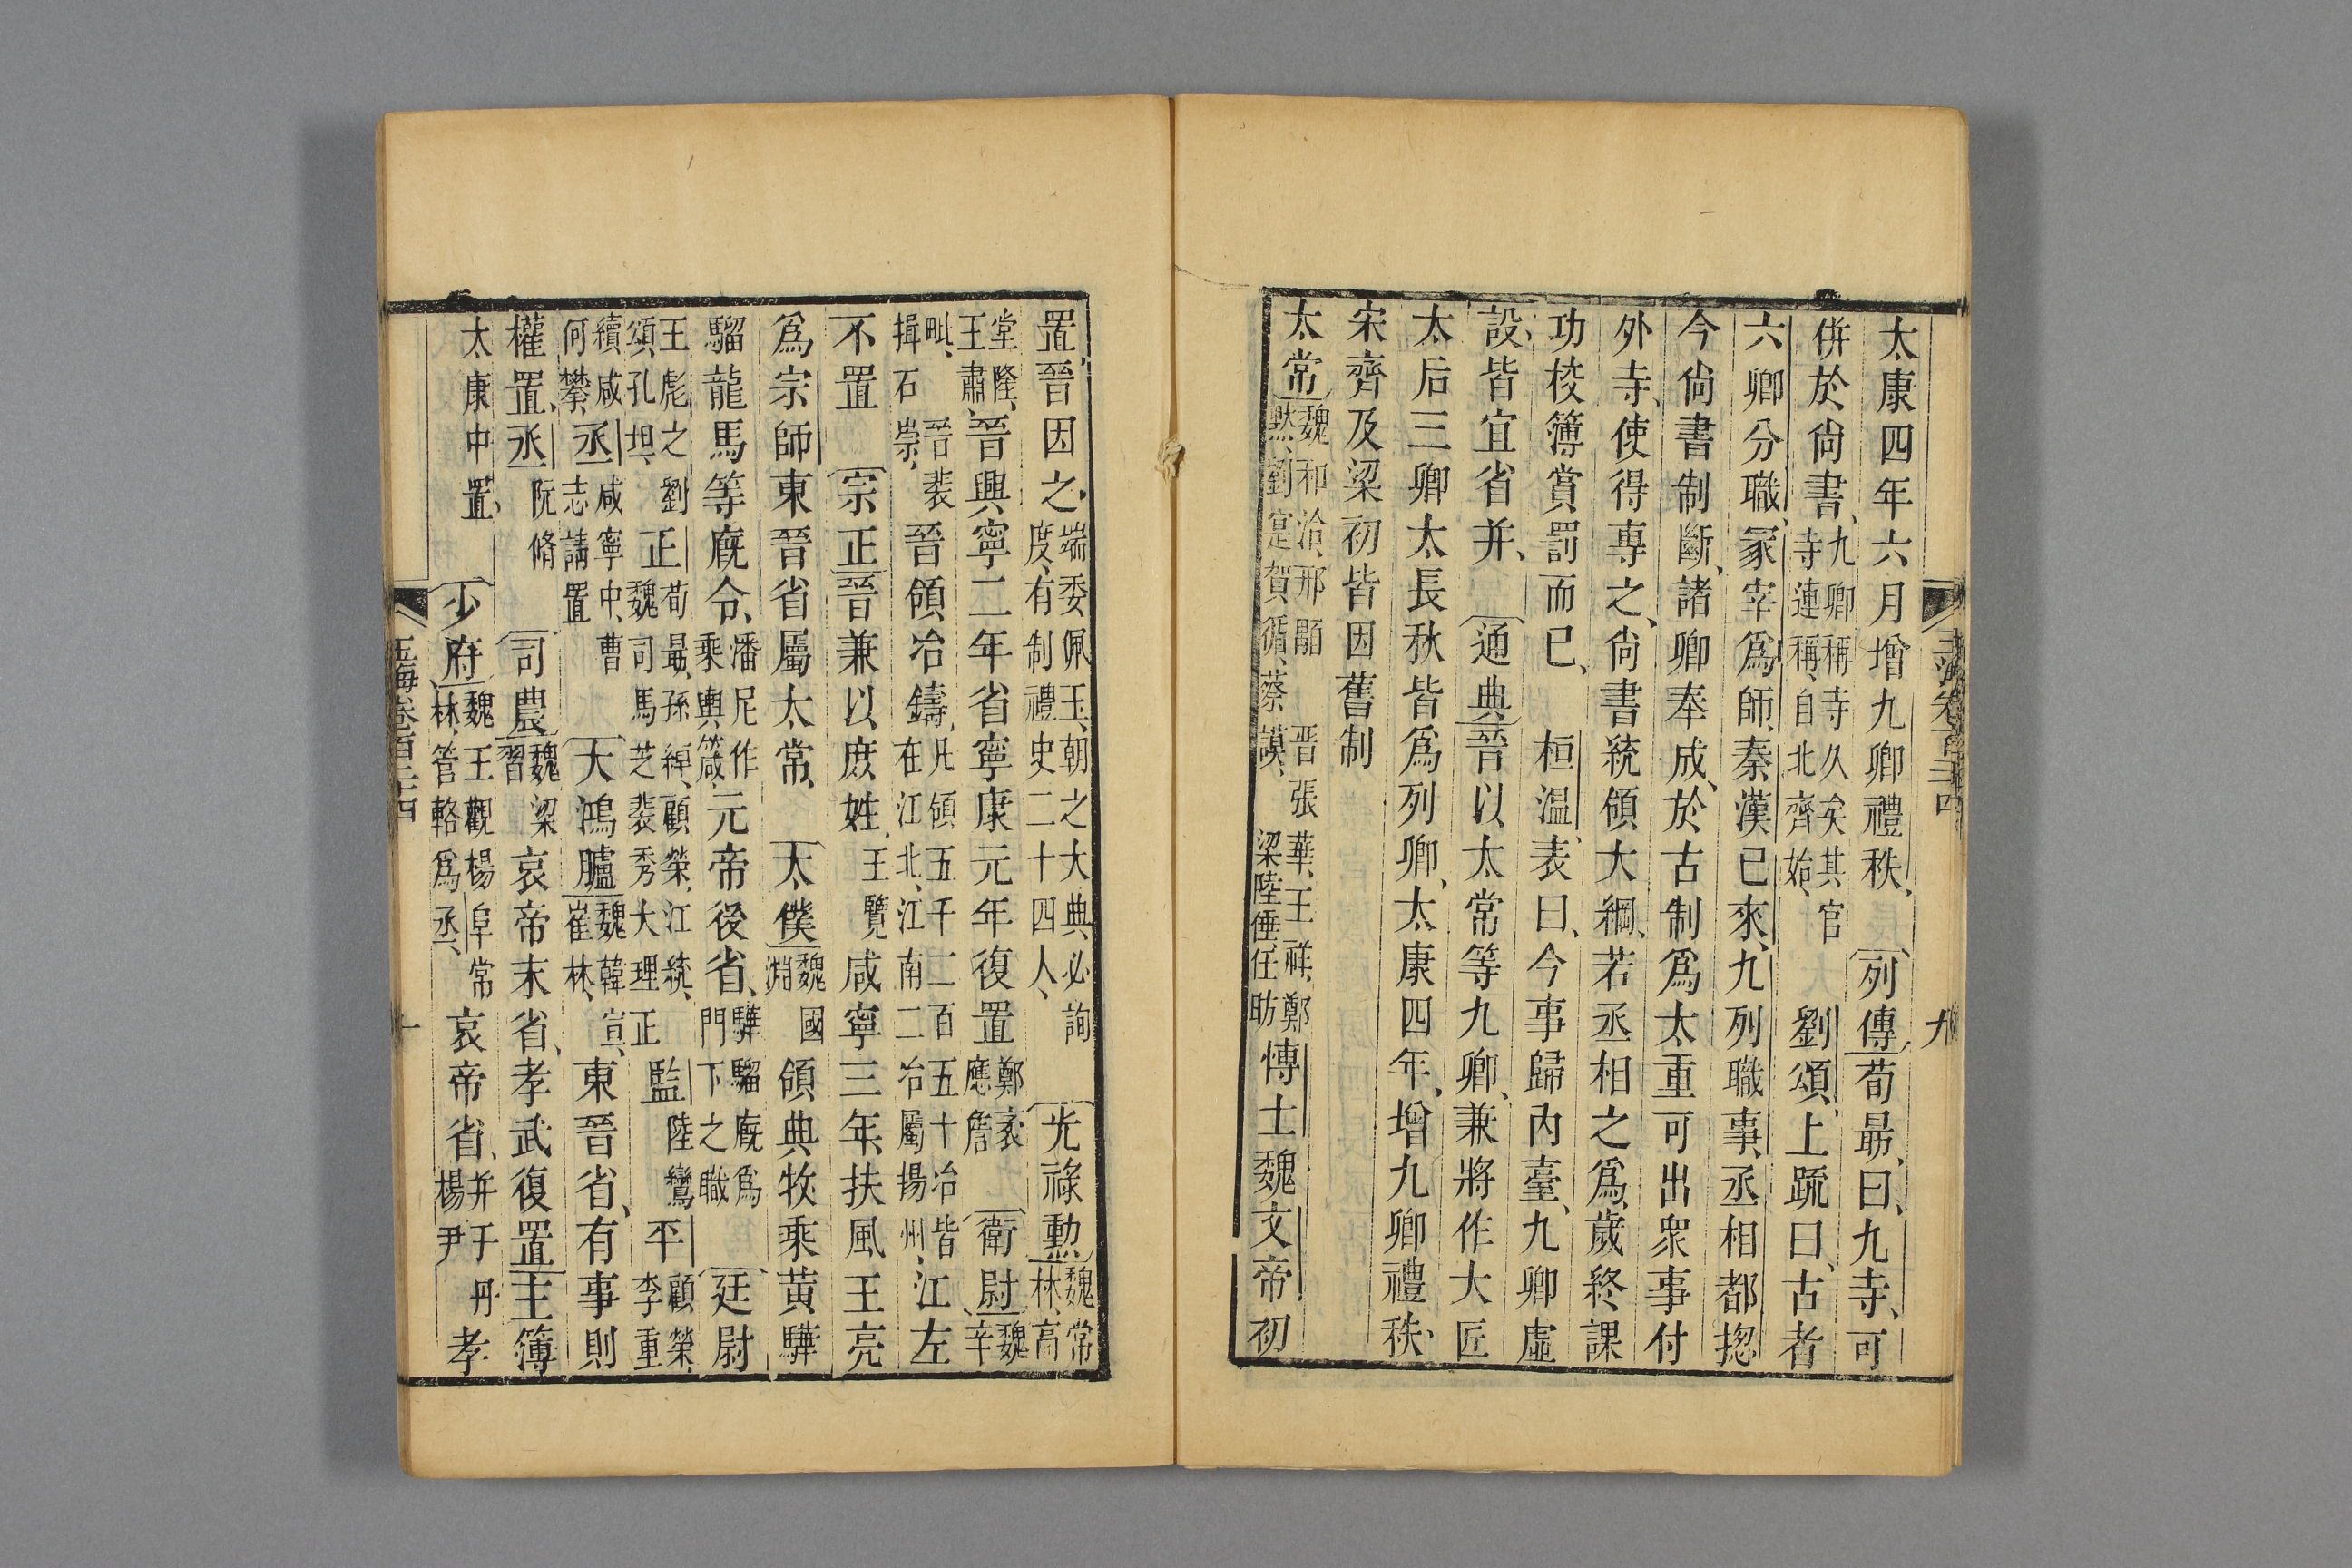 玉海卷百二十四
九
太康四年六月增九卿禮秩列傳荀勗曰九寺可
併於尚書九卿稱寺久矣其官寺連稱自北齊始劉頌上疏曰古者
六卿分職冢宰爲師秦漢已來九列職事丞相都揔
今尚書制斷諸卿奉成於古制爲太重可出衆事付
外寺使得專之尚書統領大綱若丞相之爲歲終課
功校簿賞罰而已桓温表曰今事歸內臺九卿虛
設皆宜省并通典晉以太常等九卿兼將作大匠
太后三卿太長秋皆爲列卿太康四年增九卿禮秩
宋齊及梁初皆因舊制
太常魏和洽邢顒晋張華王祥鄭默劉寔賀循蔡謨梁陸倕任昉愽士魏文帝初
置晉因之端委佩玉朝之大典必詢度有制禮史二十四人光祿勲魏常林高
堂隆王肅晉興寧二年省寧康元年復置鄭袤應詹衛尉魏辛
毗晉裴楫石崇晉領冶鑄凡領五千二百五十冶皆在江北江南二冶屬揚州江左
不置宗正晉兼以庶姓王覽咸寧三年扶風王亮
爲宗師東晉省屬太常太僕魏國淵領典牧乘黄驊
騮龍馬等廐令潘尼作乘輿箴元帝後省驊騮廐爲門下之職廷尉
王彪之劉頌孔坦正荀勗孫綽顧榮江統魏司馬芝裴秀大理正監陸鸞平顧榮李重
續咸何攀丞咸寧中曹志請置大鴻臚魏韓宣崔林東晉省有事則
權置丞阮脩司農魏梁習哀帝末省孝武復置主簿
太康中置少府魏王觀楊阜常林管輅爲丞哀帝省并于丹楊尹孝
玉海卷百二十四
十